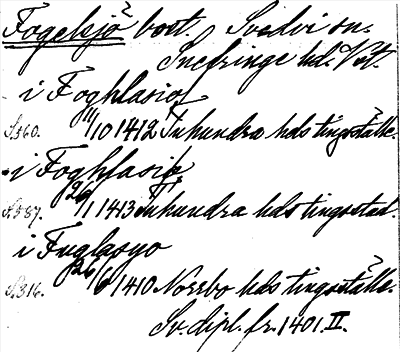 Fogelsjö? bort. Svedvi sn.
Snefringe hd. Vstm.
i Foghlasiof
S.560. 11/10 1412 Tuhundra hds tingsställe.
i Foghlasiø
S.587. 26/1 1413 Tuhundra hds tingsstad.
i Fuglasyo
S.316. 26/6 1410 Norrbo hds tingsställe.
Sv. dipl. fr. 1401. II.